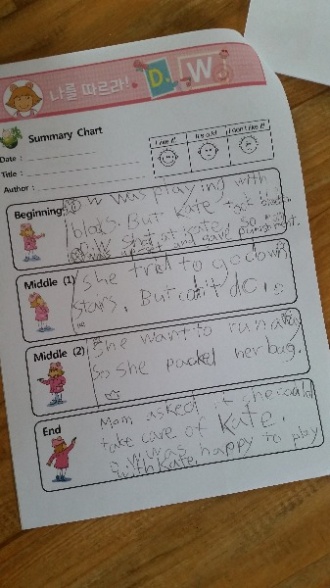 나를 따르라! D.W
Summary Chart
Date :
Title :
Author :
I like it! It's ok! I don't like it!
Beginning
W was playing with
blocks. But Kate took
D.W so
Middle (1)
She tried to go down
stars, But
Middle (2)
She want to run
so she packed her bag.
End
Mom asked if she could
take care of Kate,
D.W was happy to play
with Kate.